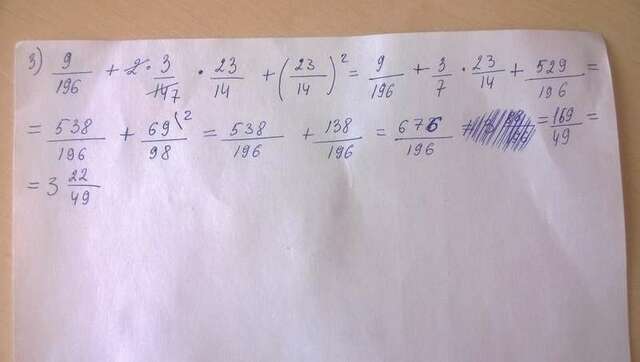 3) 9/196 + 2 · 3/14 7 · 23/14 + (23/14)² = 9/196 + 3/7 · 23/14 + 529/196 =
= 538/196 + 69/98 \2 = 538/196 + 138/196 = 676/196 = = 169/49 =
= 3 22/49